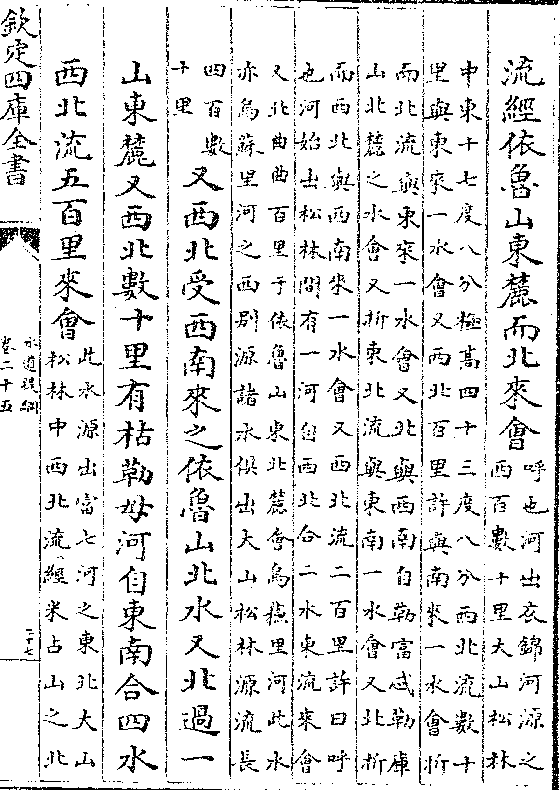 流經依魯山東麓而北來會
呼也河出衣錦河源之
西百數十里大山松林
中東十七度八分極髙四十三度八分西北流數十
里與東來一水會又西北百里許與南來一水會折
而北流與東來一水會又北與西南自勒富忒勒庫
山北麓之水會又折東北流與東南一水會又北折
而西北與西南來一水會又西北流二百里許曰呼
也河始出松林間有一河自西北合二水東流來會
又北曲曲百里于依魯山東北麓會烏蘇里河此水
亦烏蘇里河之西别源諸水俱出大山松林源流長
四百數
十里
又西北受西南來之依魯山北水又北過一
山東麓又西北數十里有枯勒毋河自東南合四水
西北流五百里來會
此水源出富七河之東北大山
松林中西北流經米占山之北
欽定四庫全書
水道提綱
卷二十五
二十七